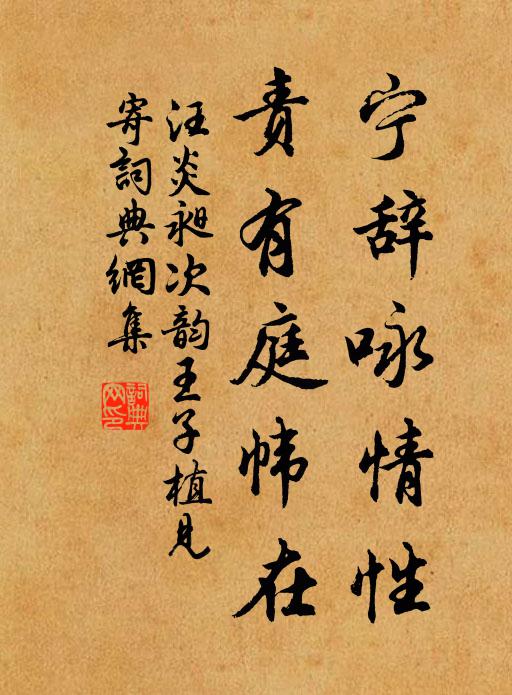 宁辞咏情性
责有庭帏在
汪炎昶次韵王子植见
寄词典网集
詞典
网印